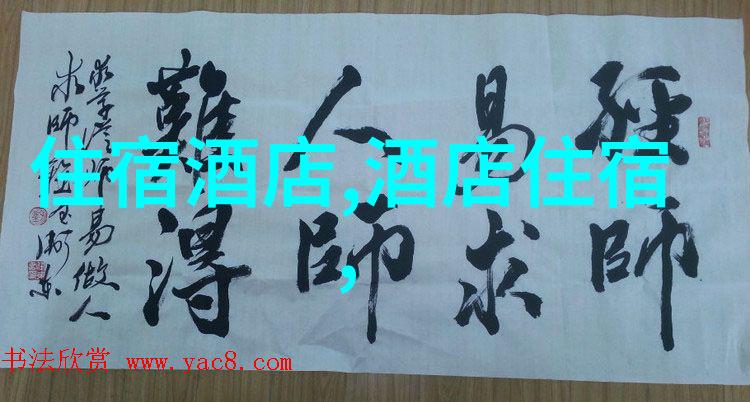 經師
易求
人師
難得
易做人
求師
住宿酒店,酒店住宿
,
书法欣赏 www.yac8.com